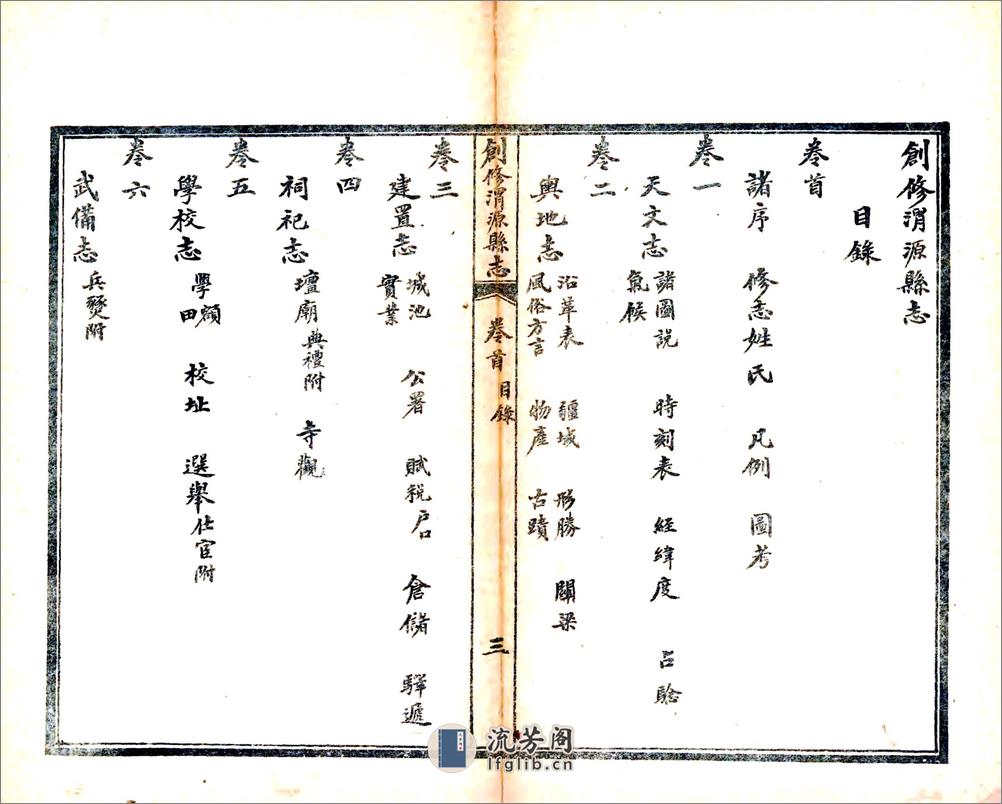 創修渭源縣志
目錄
卷首
諸序 修志姓氏 凡例 圖考
卷一
天文志 諸圖說 時刻表 經緯度 占驗
氣候
卷二
輿地志 沿革表 疆域 形勝 關梁
風俗方言 物產 古蹟
創修渭源縣志 卷首 目錄 三
卷三
建置志 城池 公署 賦稅 戶口 倉儲 驛遞
實業
卷四
祠祀志 壇廟 典禮附 寺觀
卷五
學校志 學額 校址 選舉 仕宦附
學田
卷六
武備志 兵燹附
流芳阁
lfglib.cn